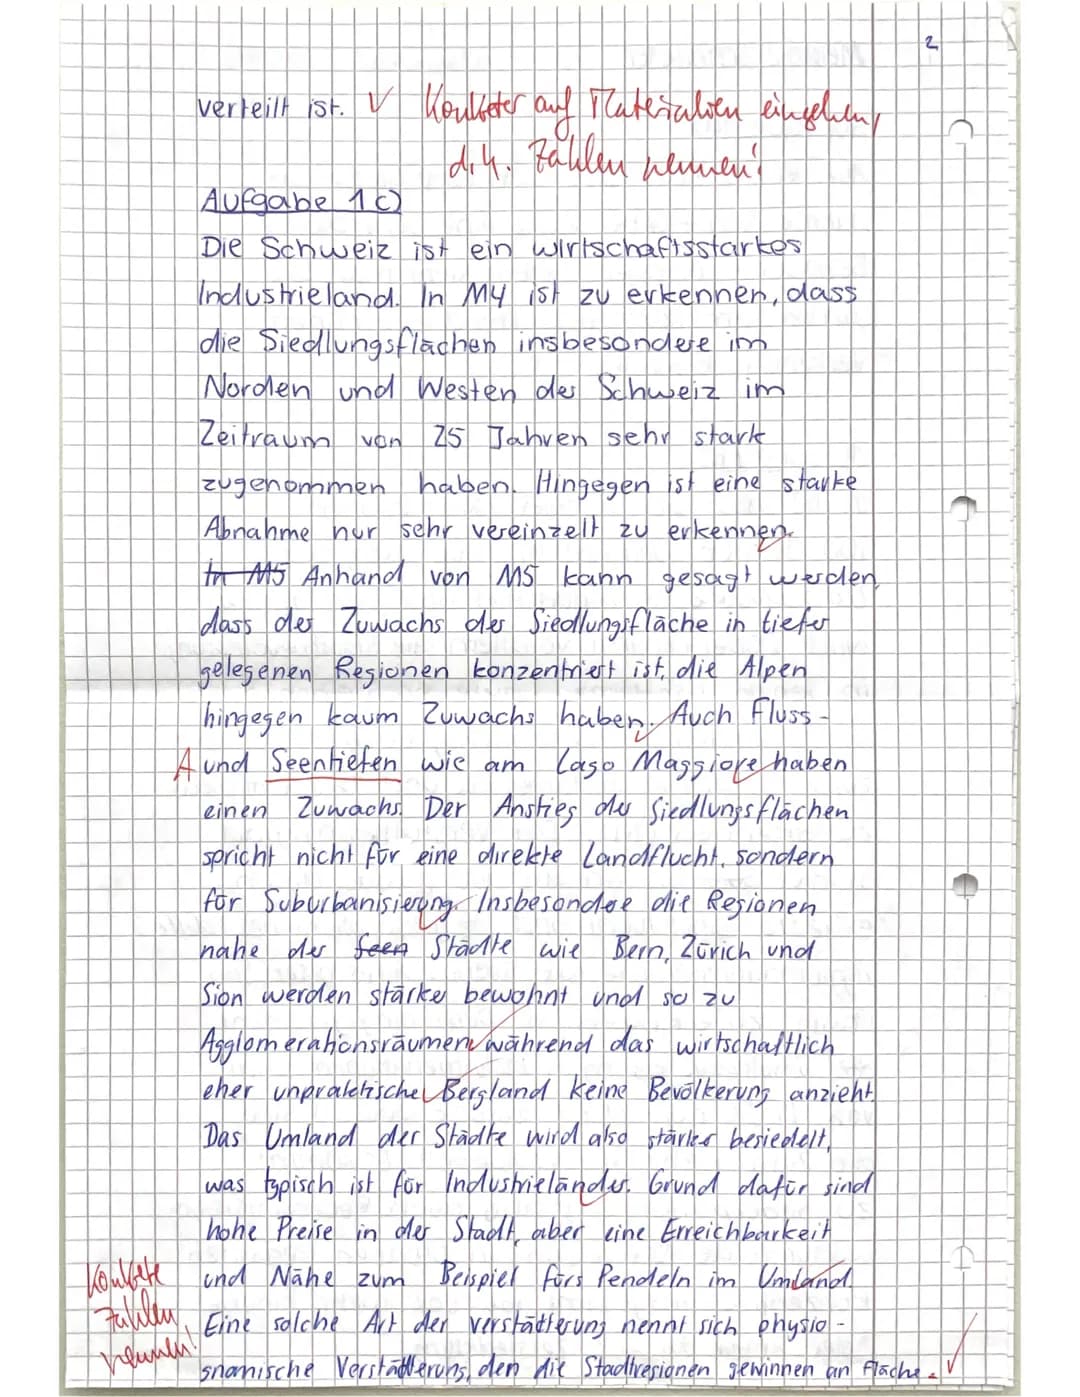 2
verteilt ist. V Konkreter auf Materialien eingehen,
d.h. Zahlen nennen!
Aufgabe 1c)
Die Schweiz ist ein wirtschaftsstarkes
Industrieland. In M4 ist zu erkennen, dass
die Siedlungsflächen insbesondere im
Norden und Westen der Schweiz im
Zeitraum von 25 Jahren sehr stark
zugenommen haben. Hingegen ist eine starke
Abnahme nur sehr vereinzelt zu erkennen.
In M5 Anhand von M5 kann gesagt werden,
dass der Zuwachs der Siedlungsfläche in tiefer
gelegenen Regionen konzentriert ist, die Alpen
hingegen kaum Zuwachs haben. Auch Fluss-
A und Seentiefen wie am Lago Maggiore haben
einen Zuwachs. Der Anstieg der Siedlungsflächen
spricht nicht für eine direkte Landflucht, sondern
für Suburbanisierung. Insbesondere die Regionen
nahe der Seen Städte wie Bern, Zürich und
Sion werden stärker bewohnt und so zu
Agglomerationsräumen, während das wirtschaftlich
eher unpraktische Bergland keine Bevölkerung anzieht.
Das Umland der Städte wird also stärker besiedelt,
was typisch ist für Industrieländer. Grund dafür sind
hohe Preise in der Stadt, aber eine Erreichbarkeit
Konkrete und Nähe zum Beispiel fürs Pendeln im Umland.
Zahlen Eine solche Art der Verstädterung nennt sich physio-
nennen! snomische Verstädterung, den die Stadtregionen gewinnen an Fläche. V